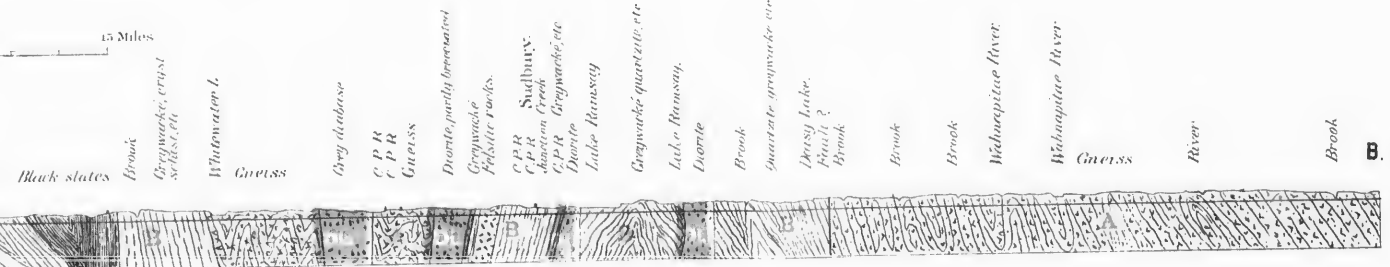 15 Miles
Black slates
Brook
Greywacké, cryst
schist, etc
Whitewater L.
Gneiss
Grey diabase
C.P.R
C.P.R
Gneiss
Diorite, partly brecciated
Greywacké
Felsitic rocks.
C.P.R
C.P.R Sudbury.
Junction Creek
C.P.R Greywacké, etc
Diorite
Lake Ramsay
Greywacké quartzite, etc
Lake Ramsay.
Diorite
Brook
Quartzite greywacke etc
Daisy Lake.
Fault ?
Brook
Brook
Brook
Wahnapitae River
Wahnapitae River
Gneiss
River
Brook
B.
B
B
B
A